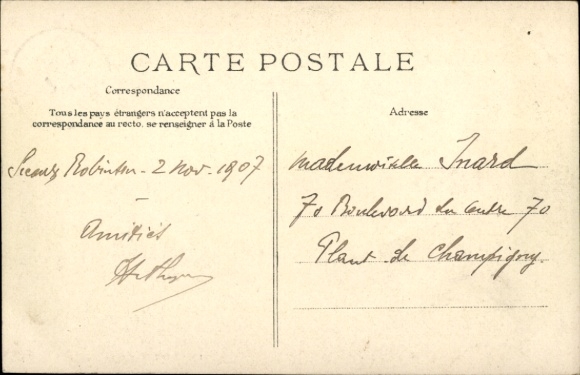 CARTE POSTALE
Correspondance
Tous les pays étrangers n'acceptent pas la
correspondance au recto, se renseigner à la Poste
Sceaux Robinson - 2 nov - 1907
-
Amitiés
Adresse
Mademoiselle Inard
70 Boulevard du Centre 70
Plant de Champigny